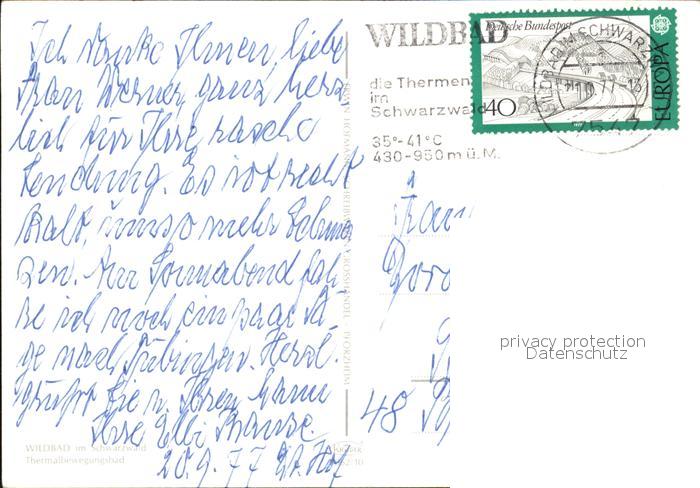 Ich danke Ihnen, liebe
Frau Werner ganz herz
lich für Ihre rasche
Sendung. Es ist recht
kalt, umso mehr Schmer
zen. Am Sonnabend fah-
re ich noch ein paar Ta-
ge nach Tübingen. Herzl.
grüßt Sie u. Ihren Mann
Ihre Elli
20.9.77
WILDBAD im Schwarzwald
Thermalbewegungsbad
WILDBAD
die Thermen
im
Schwarzwald
35°-41°C
430-950 m ü. M.
Deutsche Bundespost
40
EUROPA
WILDBAD IM SCHWARZW
7547
Frau
48
privacy protection
Datenschutz